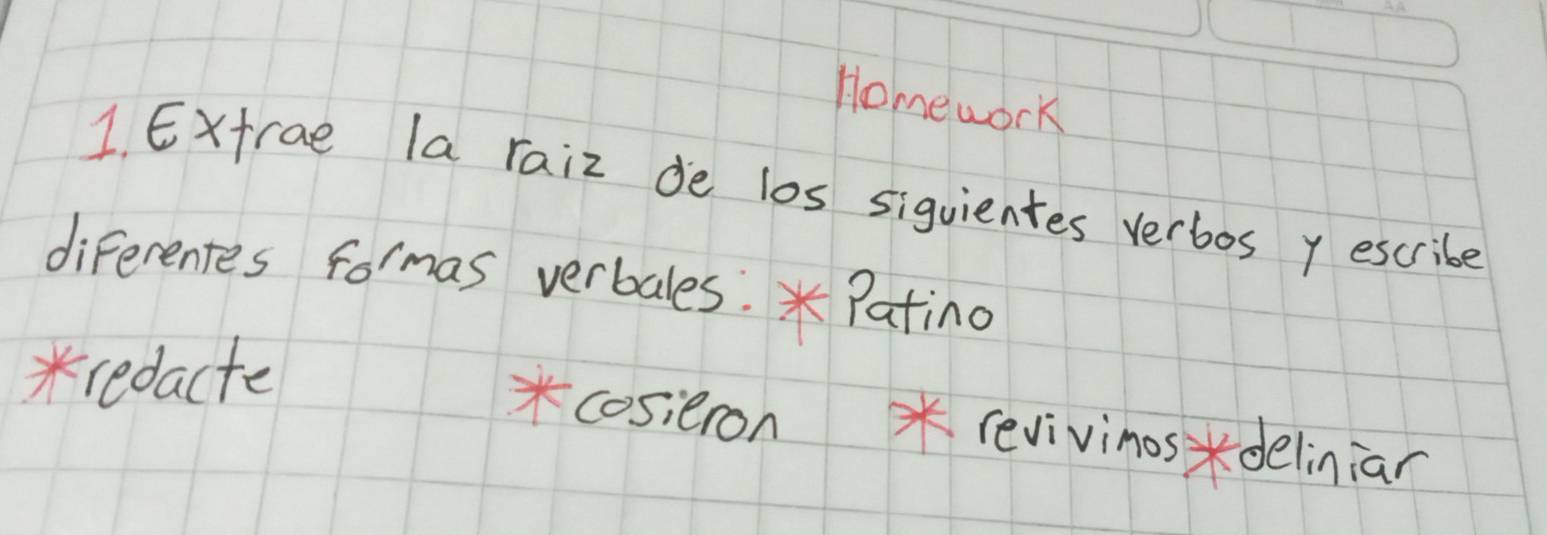 Homework
1. Extrae la raiz de los siguientes verbos y escribe
diferentes formas verbales: * Patino
* redacte * cosieron * revivimos * deliniar